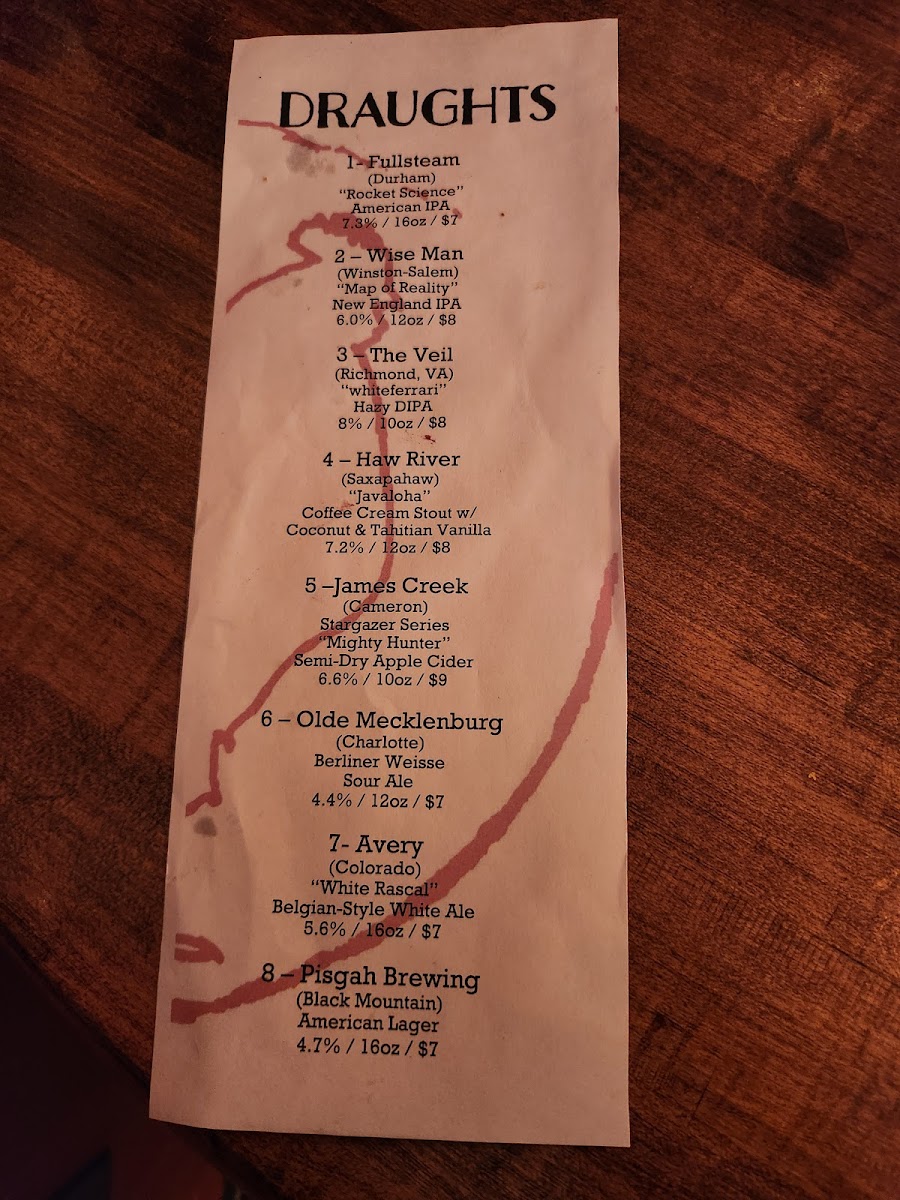 DRAUGHTS
1- Fullsteam
(Durham)
“Rocket Science”
American IPA
7.3% / 16oz / $7
2 – Wise Man
(Winston-Salem)
“Map of Reality”
New England IPA
6.0% / 12oz / $8
3 – The Veil
(Richmond, VA)
“whiteferrari”
Hazy DIPA
8% / 10oz / $8
4 – Haw River
(Saxapahaw)
“Javaloha”
Coffee Cream Stout w/
Coconut & Tahitian Vanilla
7.2% / 12oz / $8
5 –James Creek
(Cameron)
Stargazer Series
“Mighty Hunter”
Semi-Dry Apple Cider
6.6% / 10oz / $9
6 – Olde Mecklenburg
(Charlotte)
Berliner Weisse
Sour Ale
4.4% / 12oz / $7
7- Avery
(Colorado)
“White Rascal”
Belgian-Style White Ale
5.6% / 16oz / $7
8 – Pisgah Brewing
(Black Mountain)
American Lager
4.7% / 16oz / $7